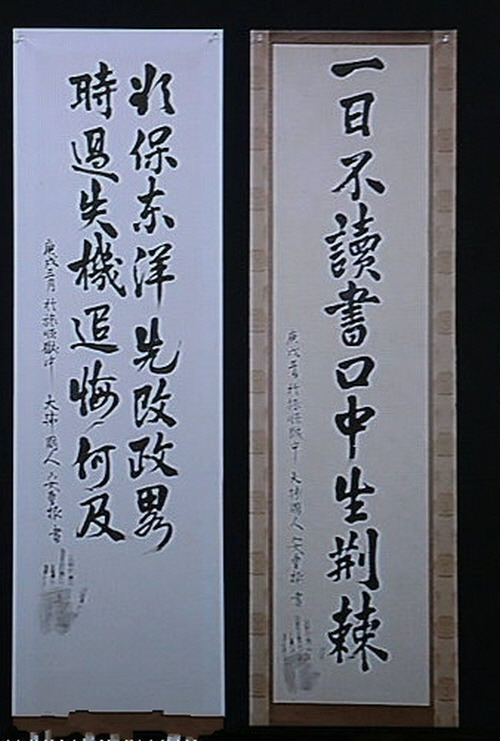 一日不讀書口中生荊棘
庚戌三月 於旅順獄中 大韓國人 安重根 書
欲保東洋先改政畧
時過失機追悔何及
庚戌三月 於旅順獄中 大韓國人 安重根 書